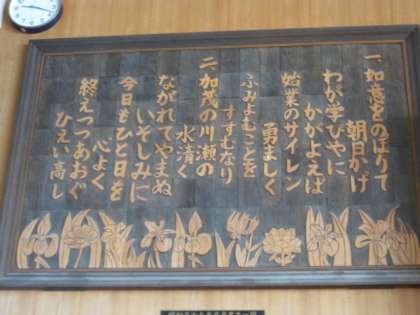 一、如意をのぼりて
朝日かげ
わが学びやに
かがよえば
始業のサイレン
勇ましく
ふみよむことを
すすむなり
二、加茂の川瀬の
水清く
ながれてやまぬ
いそしみに
今日もひと日を
心よく
終えつつあおぐ
ひえい高し